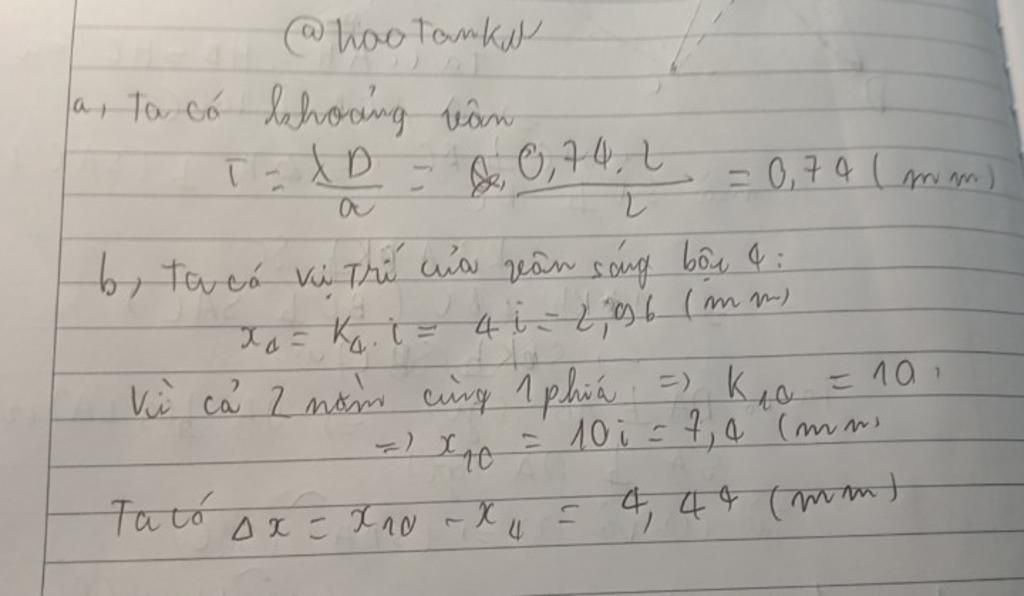 @haoTamkW
a, Ta có khoảng vân
i = λD/a = 0,74.2/2 = 0,74 (mm)
b, Ta có vị trí của vân sáng bậc 4:
x₄ = K₄.i = 4i = 2,96 (mm)
Vì cả 2 nằm cùng 1 phía => K₁₀ = 10
=> x₁₀ = 10i = 7,4 (mm)
Ta có Δx = x₁₀ - x₄ = 4,44 (mm)